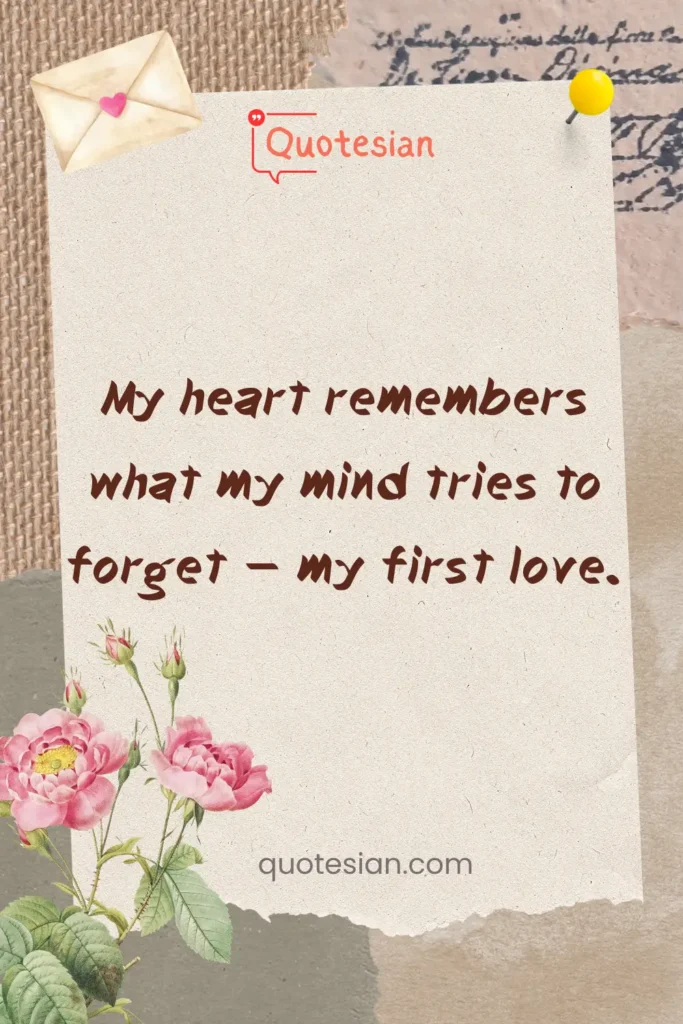 Quotesian
My heart remembers
what my mind tries to
forget – my first love.
quotesian.com